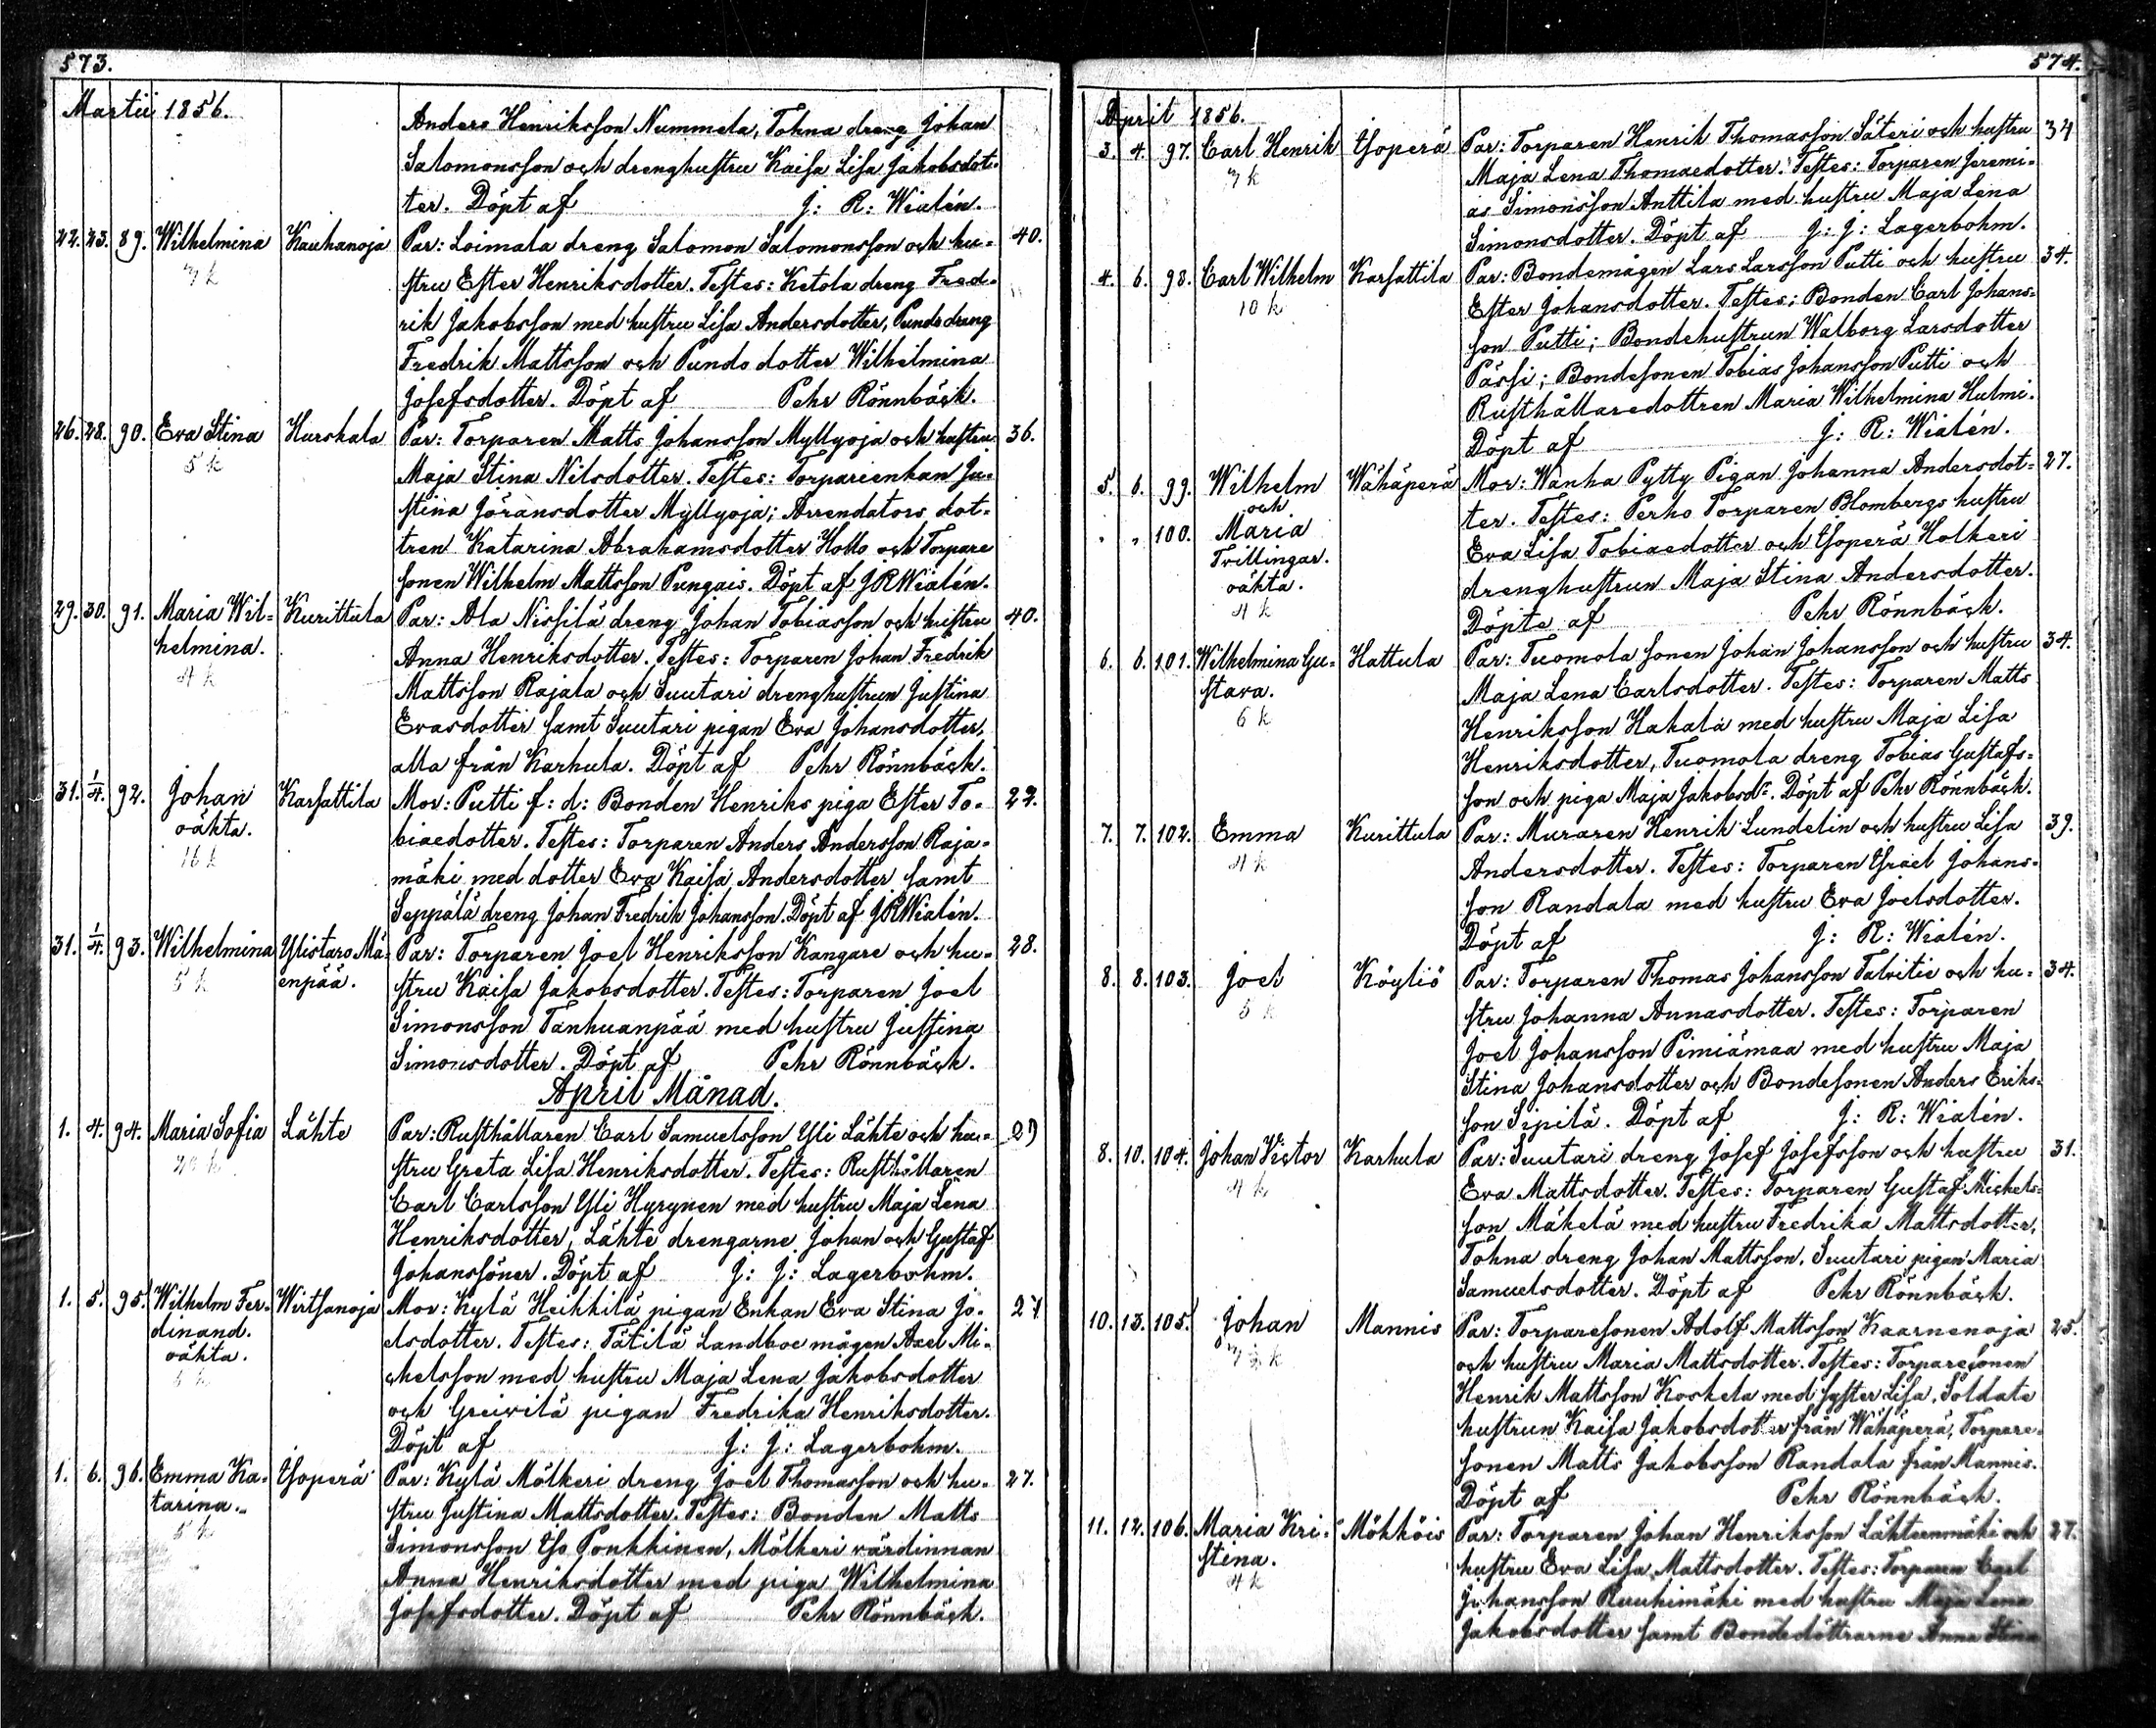 573.
Martii 1856.
Anders Henriksson Nummela, Tohna dreng Johan
Salomonsson och drenghustru Kaisa Lisa Jakobsdot-
ter. Döpt af J: R: Wialén.
22. 23. 89. Wilhelmina Kauhanoja Par: Loimala dreng Salomon Salomonsson och hu- 40.
7 k
stru Ester Henriksdotter. Testes: Ketola dreng Fred-
rik Jakobsson med hustru Lisa Andersdotter, Punds dreng
Fredrik Mattsson och Punds dotter Wilhelmina
Josefsdotter. Döpt af Pehr Rönnbäck.
26. 28. 90. Eva Stina Hurskala Par: Torparen Matts Johansson Myllyoja och hustru 36.
5 k
Maja Stina Nilsdotter. Testes: Torpareenkan Ju-
stina Jöransdotter Myllyoja; Arrendators dot-
tren Katarina Abrahamsdotter Hollo och Torpare
sonen Wilhelm Mattsson Pungais. Döpt af JRWialén.
29. 30. 91. Maria Wil- Kurittula Par: Ala Nissilä dreng Johan Tobiasson och hustru 40.
helmina.
4 k
Anna Henriksdotter. Testes: Torparen Johan Fredrik
Mattsson Rajala och Suutari drenghustrun Justina
Evasdotter samt Suutari pigan Eva Johansdotter,
alla från Karhula. Döpt af Pehr Rönnbäck.
31. 1/4. 92. Johan Karsattila Mor: Putti f: d: Bonden Henriks piga Ester To- 22.
oäkta.
16 k
biaedotter. Testes: Torparen Anders Andersson Raja-
mäki med dotter Eva Kaisa Andersdotter samt
Seppälä dreng Johan Fredrik Johansson. Döpt af JRWialén.
31. 1/4. 93. Wilhelmina Ylistaro Mä- Par: Torparen Joel Henriksson Kangare och hu- 28.
5 k enpää.
stru Kaisa Jakobsdotter. Testes: Torparen Joel
Simonsson Tanhuanpää med hustru Justina
Simonsdotter. Döpt af Pehr Rönnbäck.
April Månad.
1. 4. 94. Maria Sofia Lähte Par: Rusthållaren Carl Samuelsson Yli Lähte och hu- 29
stru Greta Lisa Henriksdotter. Testes: Rusthållaren
Carl Carlsson Yli Hyrynen med hustru Maja Lena
Henriksdotter, Lähte drengarne Johan och Gustaf
Johanssöner. Döpt af J: J: Lagerbohm.
1. 5. 95. Wilhelm Fer- Wirtsanoja Mor: Kylä Heikkilä pigan Enkan Eva Stina Jo- 27
dinand.
oäkta.
5 k
elsdotter. Testes: Tätilä Landboe mågen Axel Mi-
chelsson med hustru Maja Lena Jakobsdotter
och Greivilä pigan Fredrika Henriksdotter.
Döpt af J: J: Lagerbohm.
1. 6. 96. Emma Ka- Isoperä Par: Kylä Mölkeri dreng Joel Thomasson och hu- 27.
tarina.
5 k
stru Justina Mattsdotter. Testes: Bonden Matts
Simonsson Iso Poukkinen, Mölkeri värdinnan
Anna Henriksdotter med piga Wilhelmina
Josefsdotter. Döpt af Pehr Rönnbäck.
574.
April 1856.
3. 4. 97. Carl Henrik Isoperä Par: Torparen Henrik Thomasson Säteri och hustru 34
7 k
Maja Lena Thomaedotter. Testes: Torparen Jeremi-
as Simonsson Anttila med hustru Maja Lena
Simonsdotter. Döpt af J: J: Lagerbohm.
4. 6. 98. Carl Wilhelm Karsattila Par: Bondemågen Lars Larsson Putti och hustru 34.
10 k
Ester Johansdotter. Testes: Bonden Carl Johans-
son Putti; Bondehustrun Walborg Larsdotter
Pässi; Bondesonen Tobias Johansson Putti och
Rusthållaredottren Maria Wilhelmina Hulmi.
Döpt af J: R: Wialén.
5. 6. 99. Wilhelm Wähäperä Mor: Wanha Pytty Pigan Johanna Andersdot- 27.
och
" " 100. Maria
Tvillingar.
oäkta.
4 k
ter. Testes: Perho Torparen Blombergs hustru
Eva Lisa Tobiaedotter och Isoperä Holkeri
drenghustrun Maja Stina Andersdotter.
Döpte af Pehr Rönnbäck.
6. 6. 101. Wilhelmina Gu- Hattula Par: Tuomola sonen Johan Johansson och hustru 34.
stava.
6 k
Maja Lena Carlsdotter. Testes: Torparen Matts
Henriksson Hakala med hustru Maja Lisa
Henriksdotter, Tuomola dreng Tobias Gustafs-
son och piga Maja Jakobsdr. Döpt af Pehr Rönnbäck.
7. 7. 102. Emma Kurittula Par: Muraren Henrik Lundelin och hustru Lisa 39.
4 k
Andersdotter. Testes: Torparen Israel Johans-
son Randala med hustru Eva Joelsdotter.
Döpt af J: R: Wialén.
8. 8. 103. Joel Köyliö Par: Torparen Thomas Johansson Talvitie och hu- 34.
5 k
stru Johanna Annasdotter. Testes: Torparen
Joel Johansson Pimiämaa med hustru Maja
Stina Johansdotter och Bondesonen Anders Eriks-
son Sipilä. Döpt af J: R: Wialén.
8. 10. 104. Johan Victor Karhula Par: Suutari dreng Josef Josefsson och hustru 31.
4 k
Eva Mattsdotter. Testes: Torparen Gustaf Michels-
son Mäkelä med hustru Fredrika Mattsdotter,
Tohna dreng Johan Mattsson, Suutari pigan Maria
Samuelsdotter. Döpt af Pehr Rönnbäck.
10. 13. 105. Johan Mannis Par: Torparesonen Adolf Mattsson Kaarnenoja 25.
och hustru Maria Mattsdotter. Testes: Torparesonen
Henrik Mattsson Koskela med syster Lisa, Soldate
hustrun Kaisa Jakobsdotter från Wähäperä, Torpare-
sonen Matts Jakobsson Randala från Mannis.
Döpt af Pehr Rönnbäck.
11. 12. 106. Maria Kri- Mökköis Par: Torparen Johan Henriksson Lähteenmäki och 27.
stina.
4 k
hustru Eva Lisa Mattsdotter. Testes: Torparen Carl
Johansson Ruuhimäki med hustru Maja Lena
Jakobsdotter samt Bondedöttrarne Anna Stina